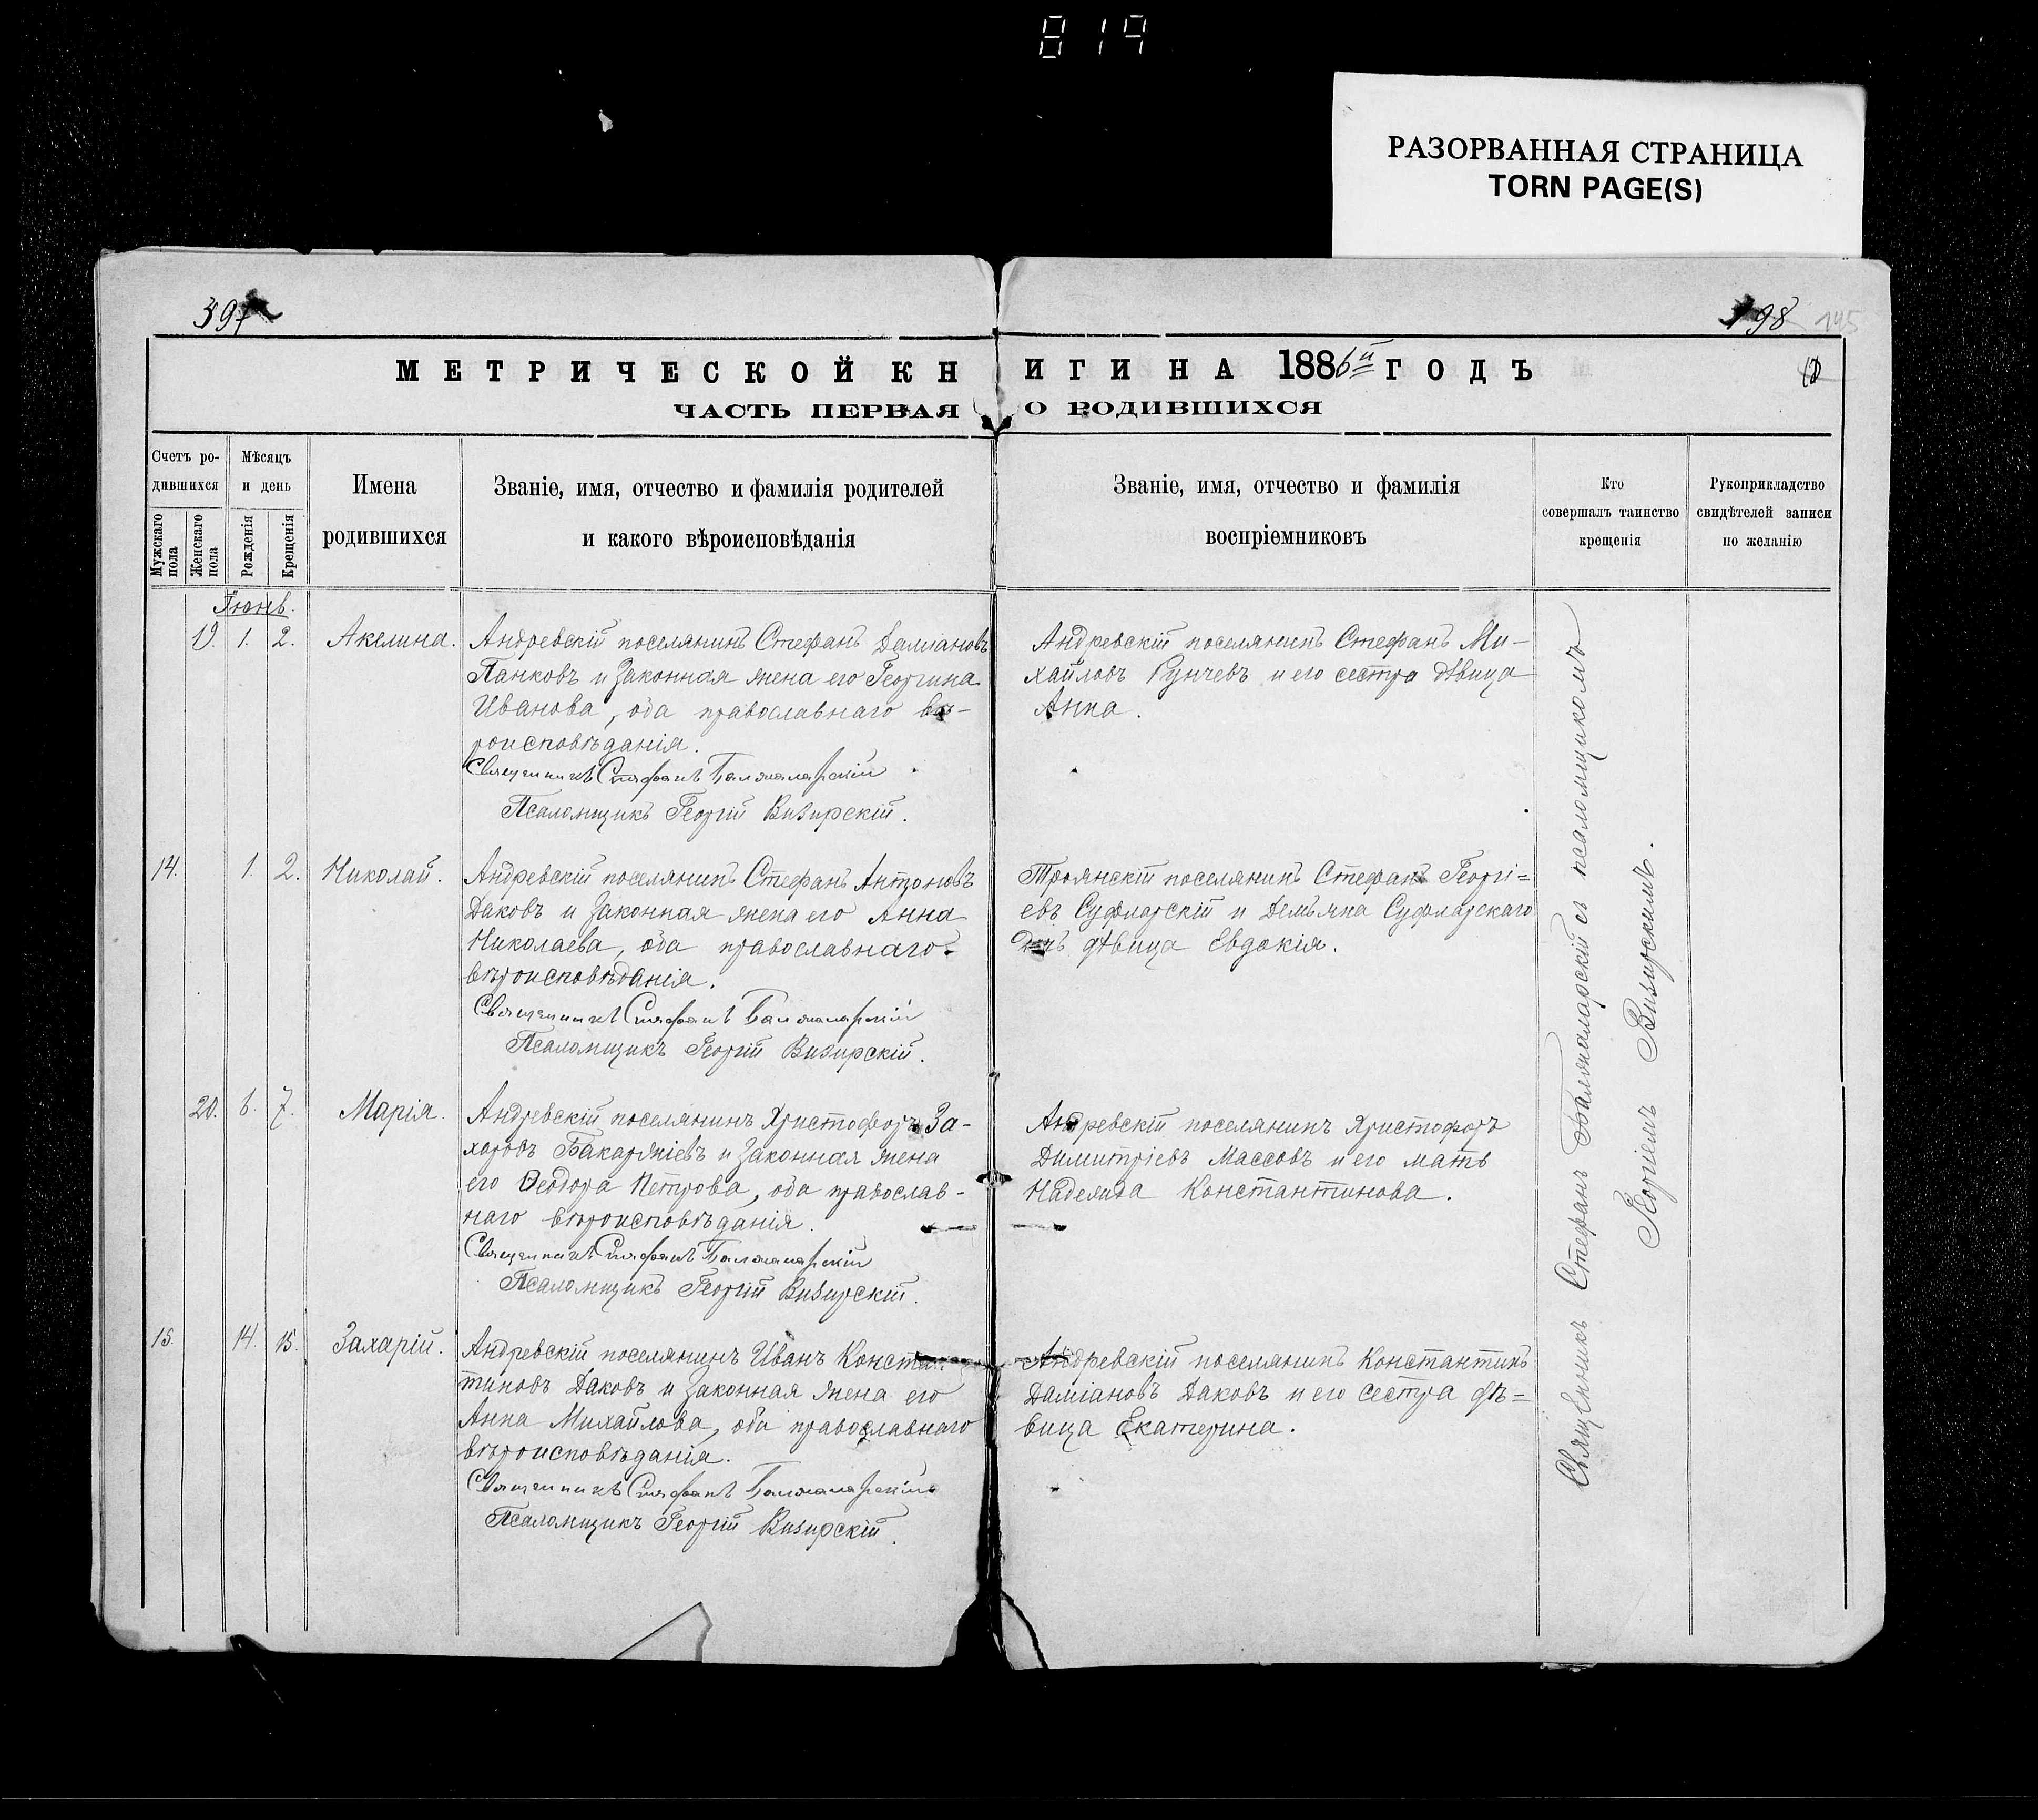 819
РАЗОРВАННАЯ СТРАНИЦА
TORN PAGE(S)
397
198
195
МЕТРИЧЕСКОЙ КНИГИ НА 1886й ГОДЪ
ЧАСТЬ ПЕРВАЯ О РОДИВШИХСЯ
Счетъ ро-
дившихся
Мужскаго пола
Женскаго пола
Мѣсяцъ
и день
Рожденія
Крещенія
Имена
родившихся
Званіе, имя, отчество и фамилія родителей
и какого вѣроисповѣданія
Званіе, имя, отчество и фамилія
воспріемниковъ
Кто
совершалъ таинство
крещенія
Рукоприкладство
свидѣтелей записи
по желанію
Іюнь.
19. 1. 2. Акелина.
Андревскій поселянинъ Стефанъ Даміановъ
Панковъ и законная жена его Георгина
Иванова, оба православнаго вѣ-
роисповѣданія.
Священникъ Стефанъ Балжаларскій
Псаломщикъ Георгій Визирскій.
Андревскій поселянинъ Стефанъ Ми-
хайловъ Рунчевъ и его сестра дѣвица
Анна.
14. 1. 2. Николай.
Андревскій поселянинъ Стефанъ Антоновъ
Даковъ и законная жена его Анна
Николаева, оба православнаго
вѣроисповѣданія.
Священникъ Стефанъ Балжаларскій
Псаломщикъ Георгій Визирскій.
Троянскій поселянинъ Стефанъ Георгі=
евъ Суфларскій и Демьяна Суфларскаго
дочь дѣвица Евдокія.
20. 6. 7. Марія.
Андревскій поселянинъ Христофоръ За-
харовъ Бакаржіевъ и законная жена
его Ѳеодора Петрова, оба православ-
наго вѣроисповѣданія.
Священникъ Стефанъ Балжаларскій
Псаломщикъ Георгій Визирскій.
Андревскій поселянинъ Христофоръ
Димитріевъ Массовъ и его мать
Надежда Константинова.
15. 14. 15. Захарій.
Андревскій поселянинъ Иванъ Констан-
тиновъ Даковъ и законная жена его
Анна Михайлова, оба православнаго
вѣроисповѣданія.
Священникъ Стефанъ Балжаларскій
Псаломщикъ Георгій Визирскій.
Андревскій поселянинъ Константинъ
Даміановъ Даковъ и его сестра дѣ=
вица Екатерина.
Священникъ Стефанъ Балжаларскій съ псаломщикомъ
Георгіемъ Визирскимъ.